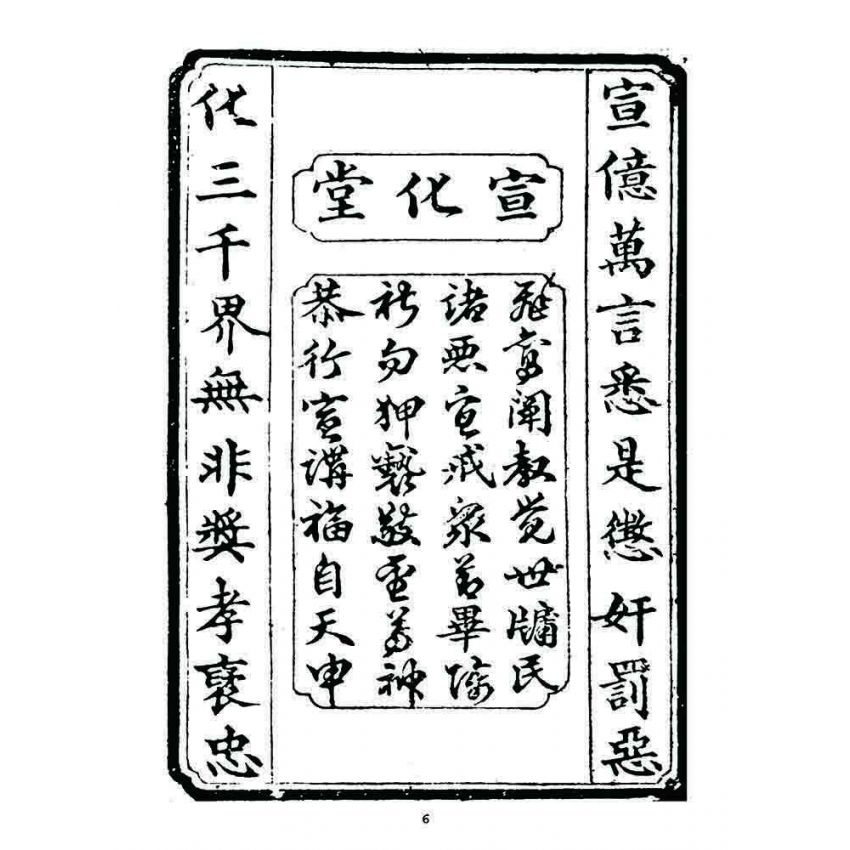 宣億萬言悉是懲奸罰惡
宣化堂
飛鸞闡教覺世牖民
諸惡宜戒眾善畢
勿狎褻敬聖尊神
恭行宣講福自天申
化三千界無非獎孝褒忠
6